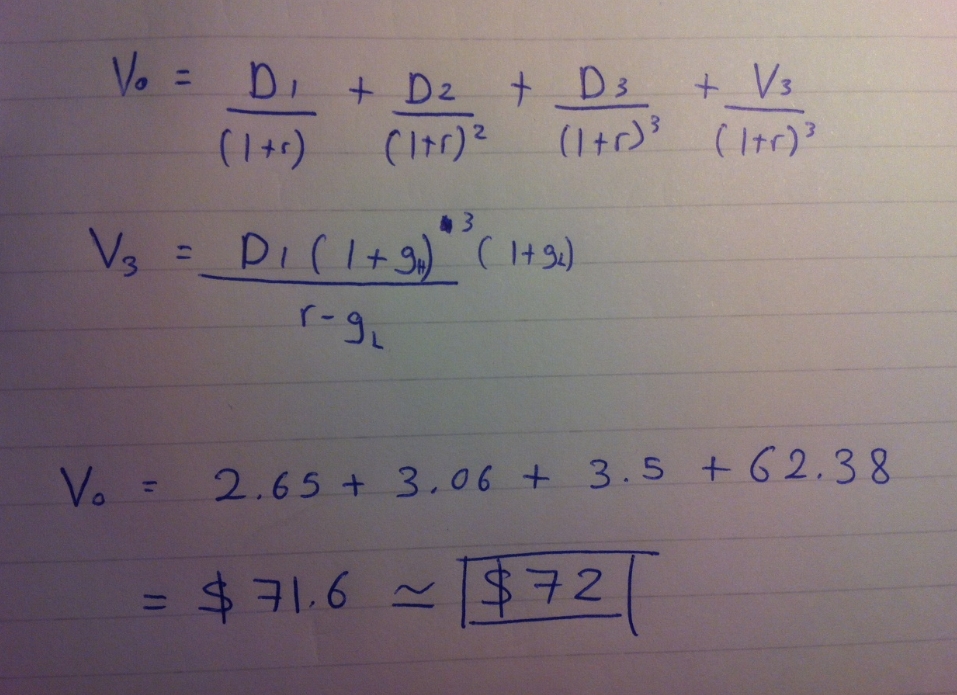 V₀ = D₁/(1+r) + D₂/(1+r)² + D₃/(1+r)³ + V₃/(1+r)³
V₃ = D₁(1+g_H)³(1+g_L)/r-g_L
V₀ = 2.65 + 3.06 + 3.5 + 62.38
= $71.6 ≃ $72